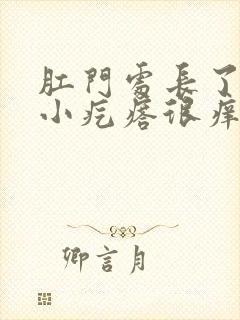 肛門處長了
小疙瘩很癢
卿言月